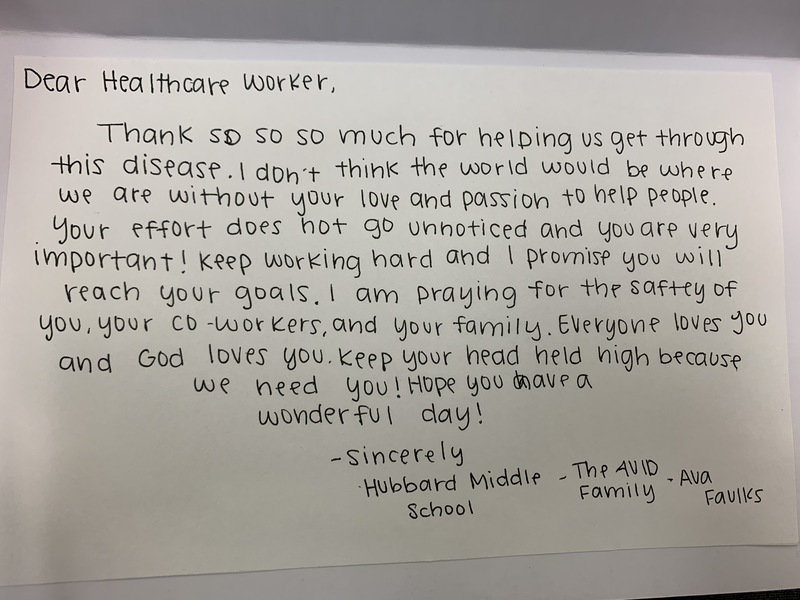 Dear Healthcare Worker,
Thank so so so much for helping us get through
this disease. I don't think the world would be where
we are without your love and passion to help people.
Your effort does not go unnoticed and you are very
important! Keep working hard and I promise you will
reach your goals. I am praying for the saftey of
you, your co-workers, and your family. Everyone loves you
and God loves you. Keep your head held high because
we need you! Hope you have a
wonderful day!
-Sincerely
Hubbard Middle School
- The AVID Family
- Ava Faulks